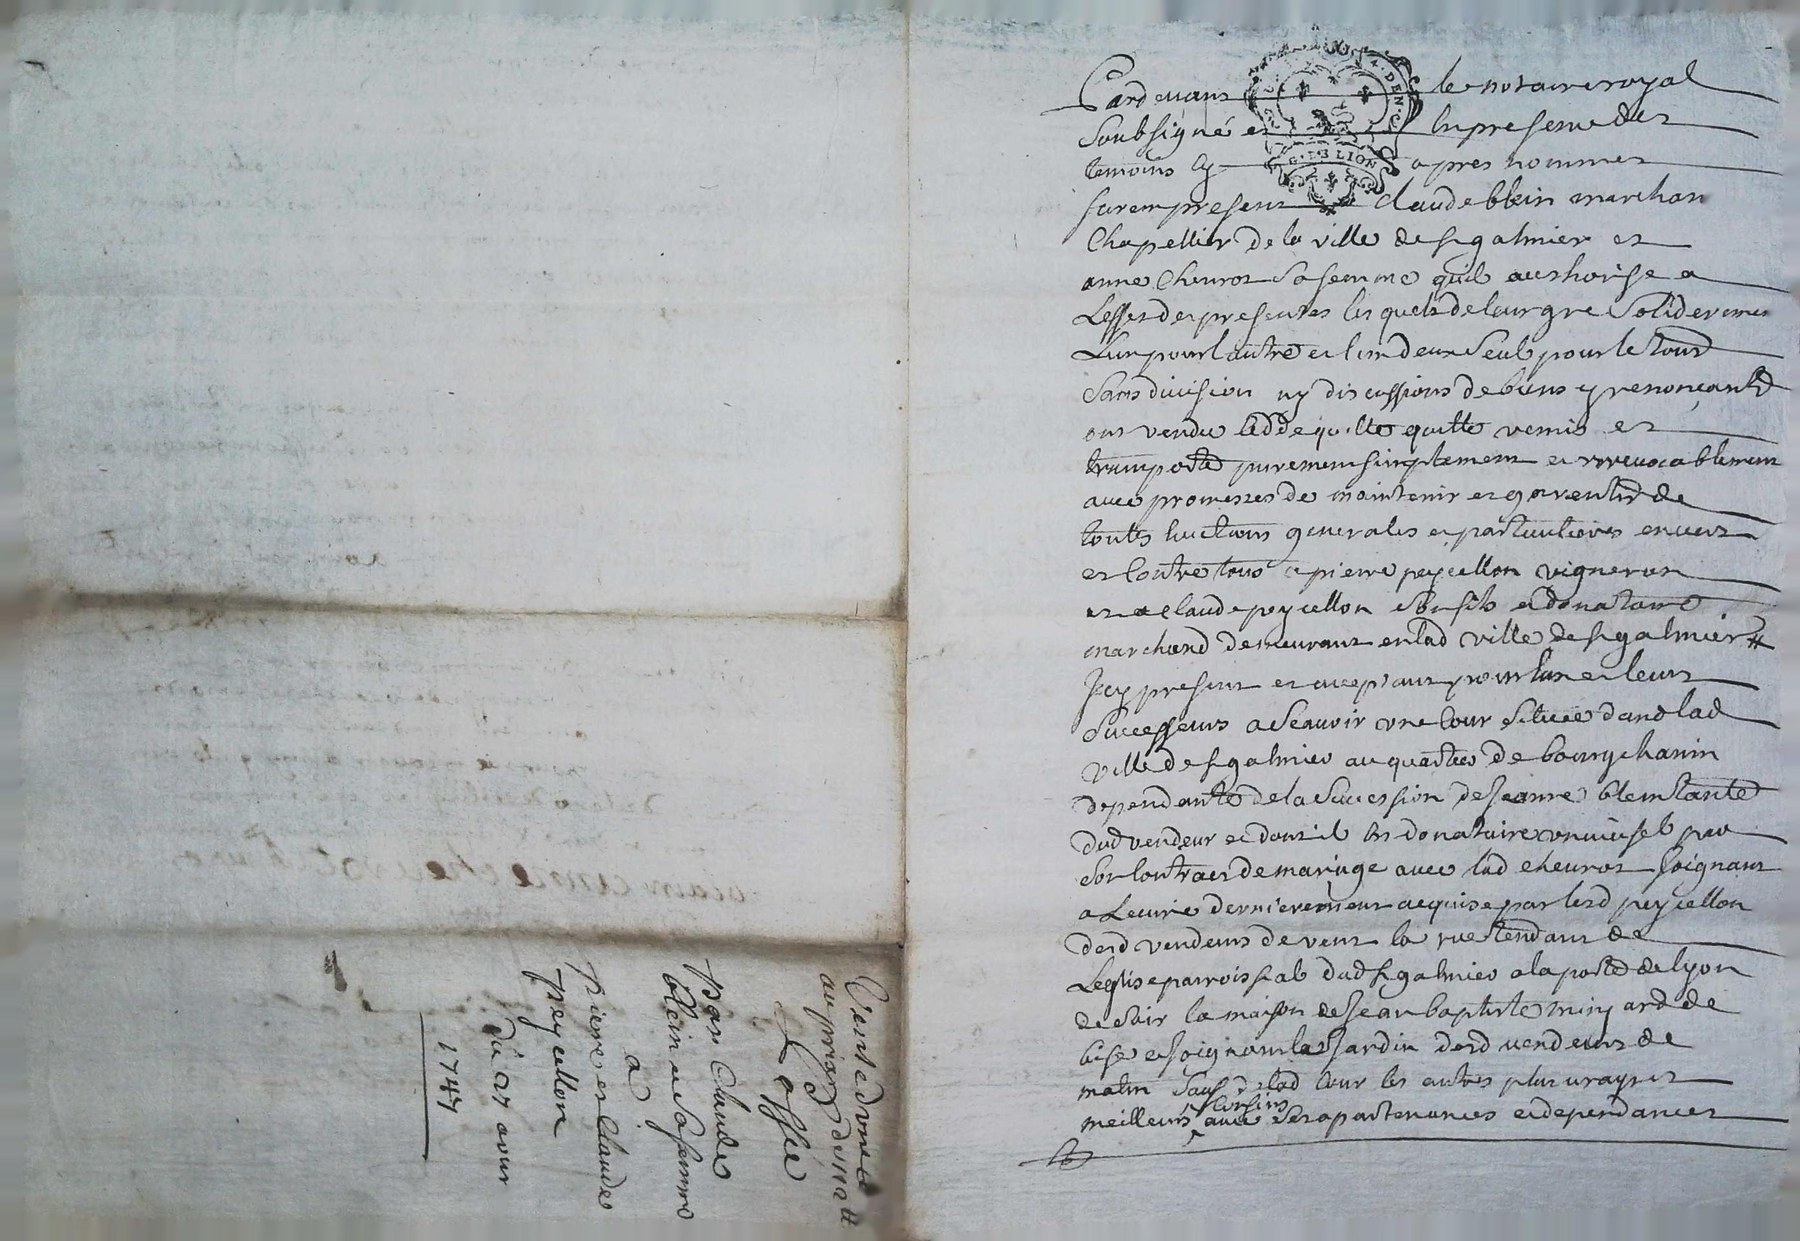 Pardevant le notaire royal
soubsigné et en presence des
temoins cy apres nommes
furent presents Claude blein marchan
Chapellier de la ville de st galmier et
anne Chevrot sa femme quil authorise a
Leffet des presentes les quels de leur gre soliderement
Lun pour lautre et lun deux seul pour le tout
sans division ny discussions de biens y renonçant
ont vendu cedde quitte remis et
transporté purement simplement et irrevocablement
avec promesses de maintenir et garentir de
toutes evictions generales et particulieres envers
et contre tous a pierre peycellon vigneron
et a claude peycellon son fils et donataire
marchand demeurant en lad ville de st galmier
Icy present et acceptant pour eux et leurs
successeurs a scavoir une cour scituée dans lad
ville de st galmier au quartier de bourgchanin
dependante de la succession de jeanne blein tante
dud vendeur et dont il est donataire universel par
son contract de mariage avec lad chevrot joignant
a Lecurie dernierement acquise par lesd peycellon
desd vendeurs de vent la rue tendant de
Leglise parroissiale dud st galmier a la porte de lyon
de soir la maison de jean baptiste minjard de
bise et joignant le jardin desd vendeurs de
matin sauf de lad cour les autres plus vrays et
meilleurs confins avec ses apartenances et dependances
G. DE LION
Vente dune
au prix de 112 tt
par Claude
blein et sa femme
a
pierre et Claude
peycellon
du 21 avril
1747